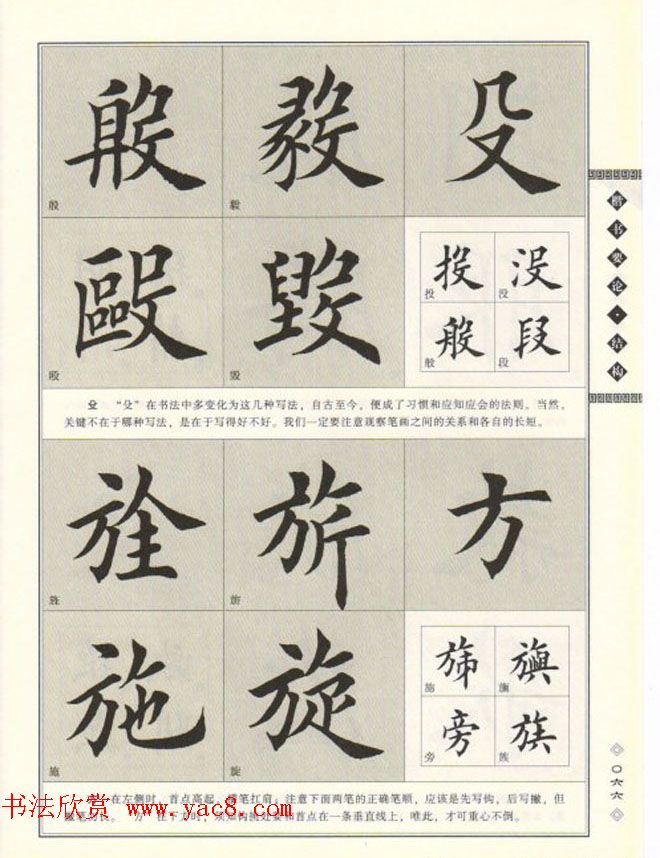 殷 毅 殳
殷
毅
殴 毁
殴
毁
投 没
投
没
般 段
般
段
殳 “殳”在书法中多变化为这几种写法，自古至今，便成了习惯和应知应会的法则。当然，
关键不在于哪种写法，是在于写得好不好。我们一定要注意观察笔画之间的关系和各自的长短。
方
施 旋
施
旋
旁 族
旁
族
在左侧时，首点高起，横笔扛肩；注意下面两笔的正确笔顺，应该是先写钩，后写撇，但
要和首点在一条垂直线上，唯此，才可重心不倒。
书法欣赏 www.yac8.com
楷书要论·结构
〇六六